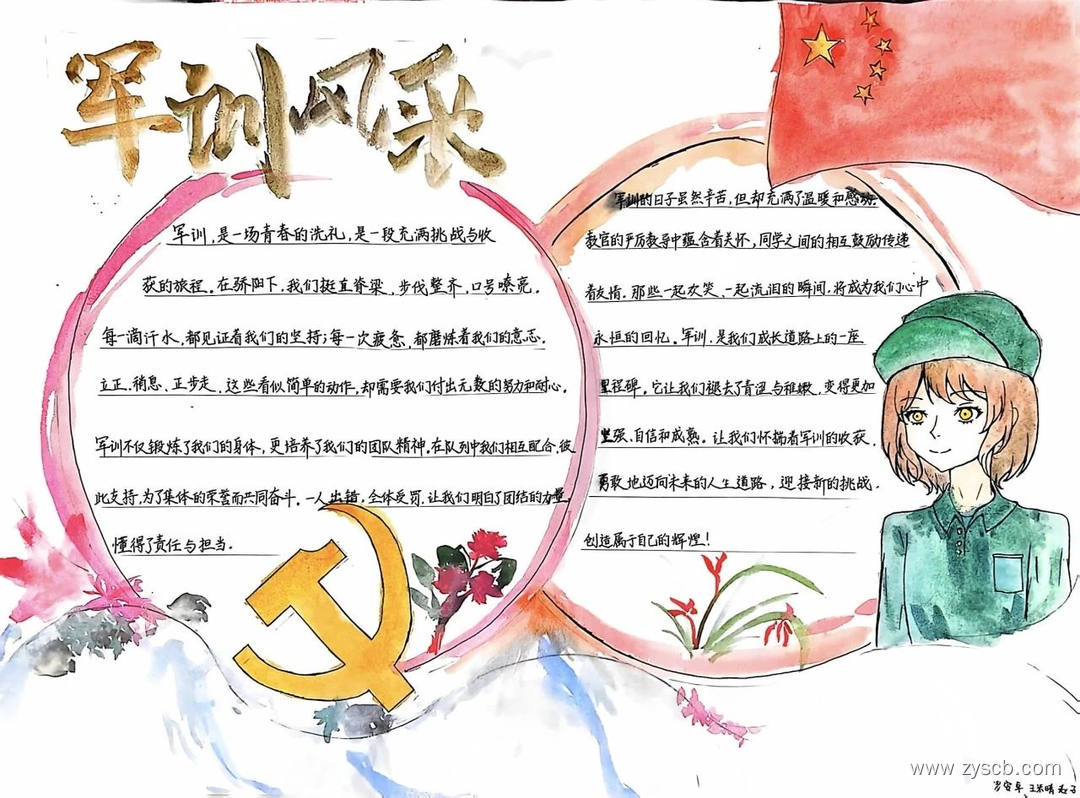 军训风采
军训，是一场青春的洗礼，是一段充满挑战与收
获的旅程。在骄阳下，我们挺直脊梁，步伐整齐，口号嘹亮。
每一滴汗水，都见证着我们的坚持；每一次疲惫，都磨炼着我们的意志。
立正、稍息、正步走、这些看似简单的动作，却需要我们付出无数的努力和耐心。
军训不仅锻炼了我们的身体，更培养了我们的团队精神。在队列中我们相互配合，彼
此支持，为了集体的荣誉而共同奋斗。一人出错，全体受罚，让我们明白了团结的力量，
懂得了责任与担当。
军训的日子虽然辛苦，但却充满了温暖和感动。
教官的严厉教导中蕴含着关怀，同学之间的相互鼓励传递
着友情。那些一起欢笑、一起流泪的瞬间，将成为我们心中
永恒的回忆。军训，是我们成长道路上的一座
里程碑。它让我们褪去了青涩与稚嫩，变得更加
坚强、自信和成熟。让我们怀揣着军训的收获，
勇敢地迈向未来的人生道路，迎接新的挑战，
创造属于自己的辉煌！
www.zyscb.com